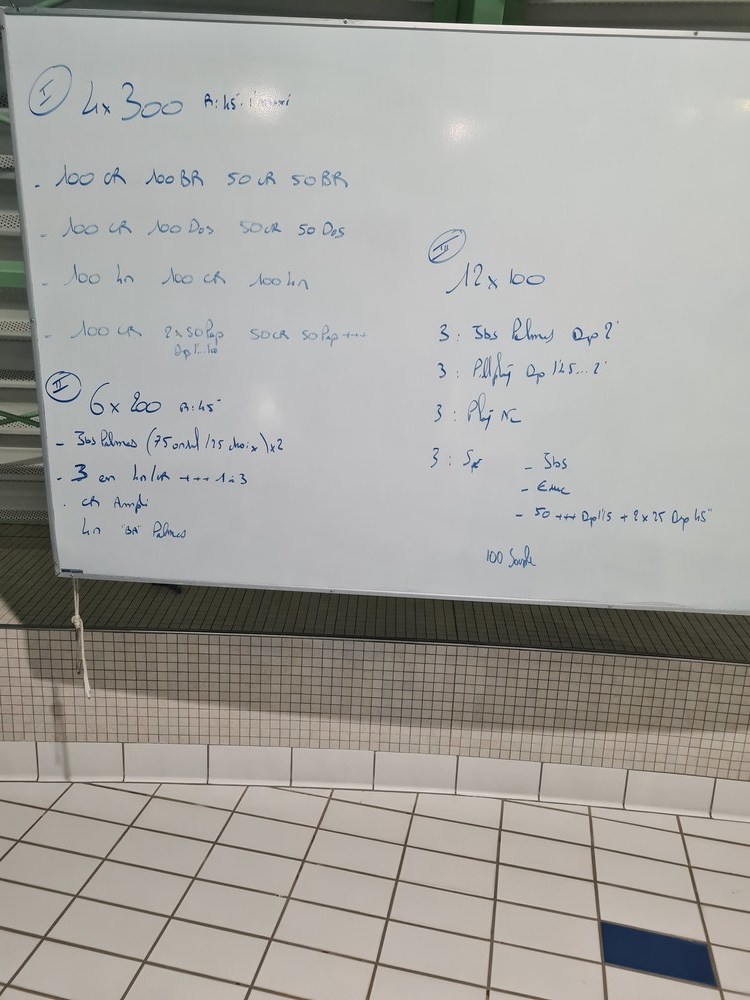 I 4x300 R:45"
- 100 CR 100 BR 50 CR 50 BR
- 100 CR 100 Dos 50 CR 50 Dos
- 100 4n 100 CR 100 4n
- 100 CR 2x50 Pap 50 CR 50 Pap +++
Dp 1'...
II 6x200 R:45"
- Jbs Palmes (75 /25 choix)x2
- 3 en 4n/CR +++ 1à3
. CR Ampli
4n "BR" Palmes
III
12x100
3: Jbs Palmes Dp 2'
3: Dp 1'45...2'
3: NC
3: Sp - Jbs
- Educ
- 50 +++ Dp 1'15 + 2x25 Dp 45"
100 Souple